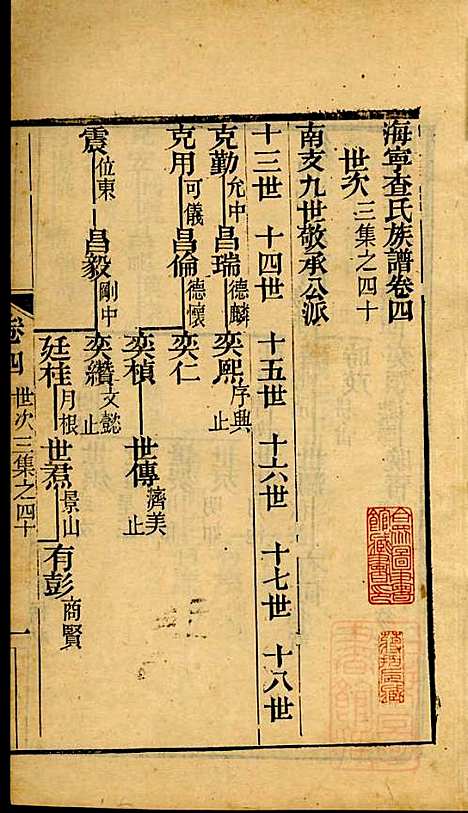 海寧查氏族譜卷四
世次三集之四十
南支九世敬承公派
十三世 十四世 十五世 十六世 十七世 十八世
克勤允中 昌瑞德麟 奕熙序典止
克用可儀 昌倫德懷 奕仁
奕楨 世傳濟美止
震位東 昌毅剛中 奕纘文懿止
廷桂月根 世焄景山 有彭商賢
卷四 世次三集之四十 一